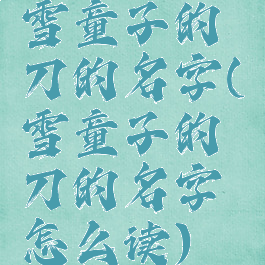 雪童子的
刀的名字(
雪童子的
刀的名字
怎么读)